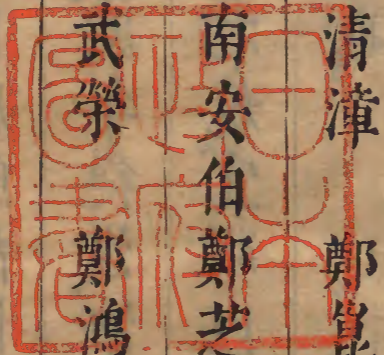 清漳 鄭
南安伯鄭芝
武榮 鄭鴻